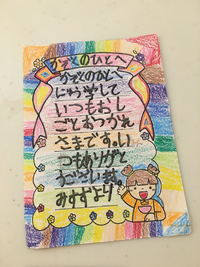 かぞくのひとへ
かぞくのひとへ
いつもおし
ごとおつかれ
さまです。い
つもありがと
うございます。
みすずより